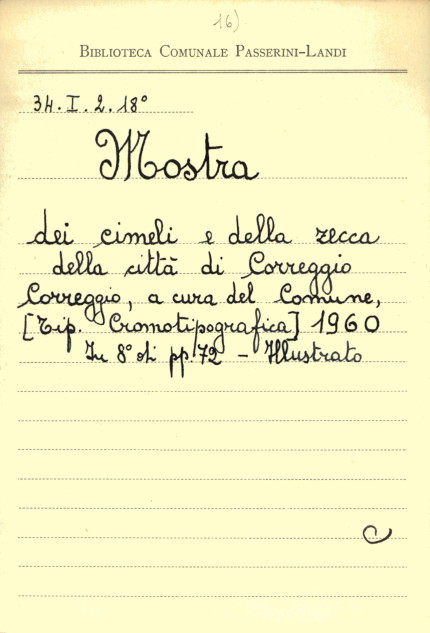 16)
BIBLIOTECA COMUNALE PASSERINI-LANDI
34. I. 2. 18°
Mostra
dei cimeli e della zecca
della città di Correggio
Correggio, a cura del Comune,
[Tip. Cromotipografica] 1960
In 8° di pp. 72 - Illustrato
C